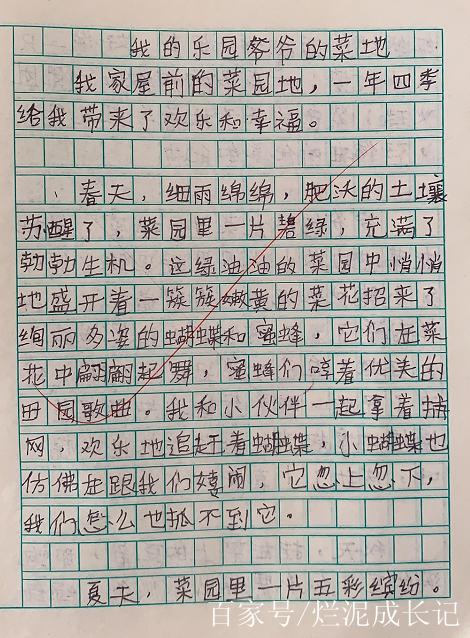 我的乐园爷爷的菜地
我家屋前的菜园地，一年四季
给我带来了欢乐和幸福。
春天，细雨绵绵，肥沃的土壤
苏醒了，菜园里一片碧绿，充满了
勃勃生机。这绿油油的菜园中悄悄
地盛开着一簇簇嫩黄的菜花招来了
绚丽多姿的蝴蝶和蜜蜂，它们在菜
花中翩翩起舞，蜜蜂们哼着优美的
田园歌曲。我和小伙伴一起拿着捕
网，欢乐地追赶着蝴蝶，小蝴蝶也
仿佛在跟我们嬉闹，它忽上忽下，
我们怎么也抓不到它。
夏天，菜园里一片五彩缤纷。
百家号/烂泥成长记